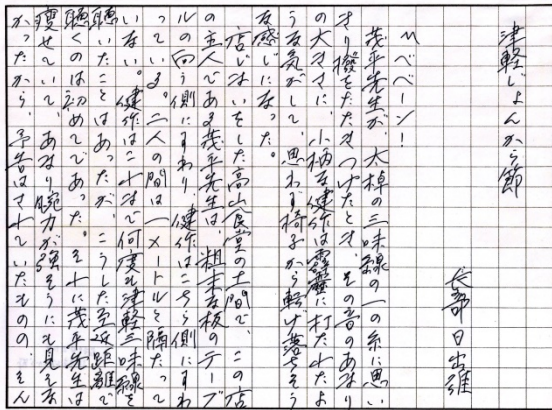 津軽じょんから節
長部日出雄
〽ベベーン！
茂平先生が、太棹の三味線の一の糸に思い
きり撥をたたきつけたとき、その音のあまり
の大きさに、小柄な健作は霹靂に打たれたよ
うな気がして、思わず椅子から転げ落ちそう
な感じになった。
店じまいをした高山食堂の土間で、この店
の主人である茂平先生は、粗末な板のテーブ
ルの向う側にすわり、健作はこちら側にすわ
っている。二人の間は一メートルと隔たって
いない。健作はこれまで何度も津軽三味線を
聴いたことはあったが、こうした至近距離で
聴くのは初めてであった。それに茂平先生は
痩せていて、あまり腕力が強そうにも見えな
かったから、予告はされていたものの、そん